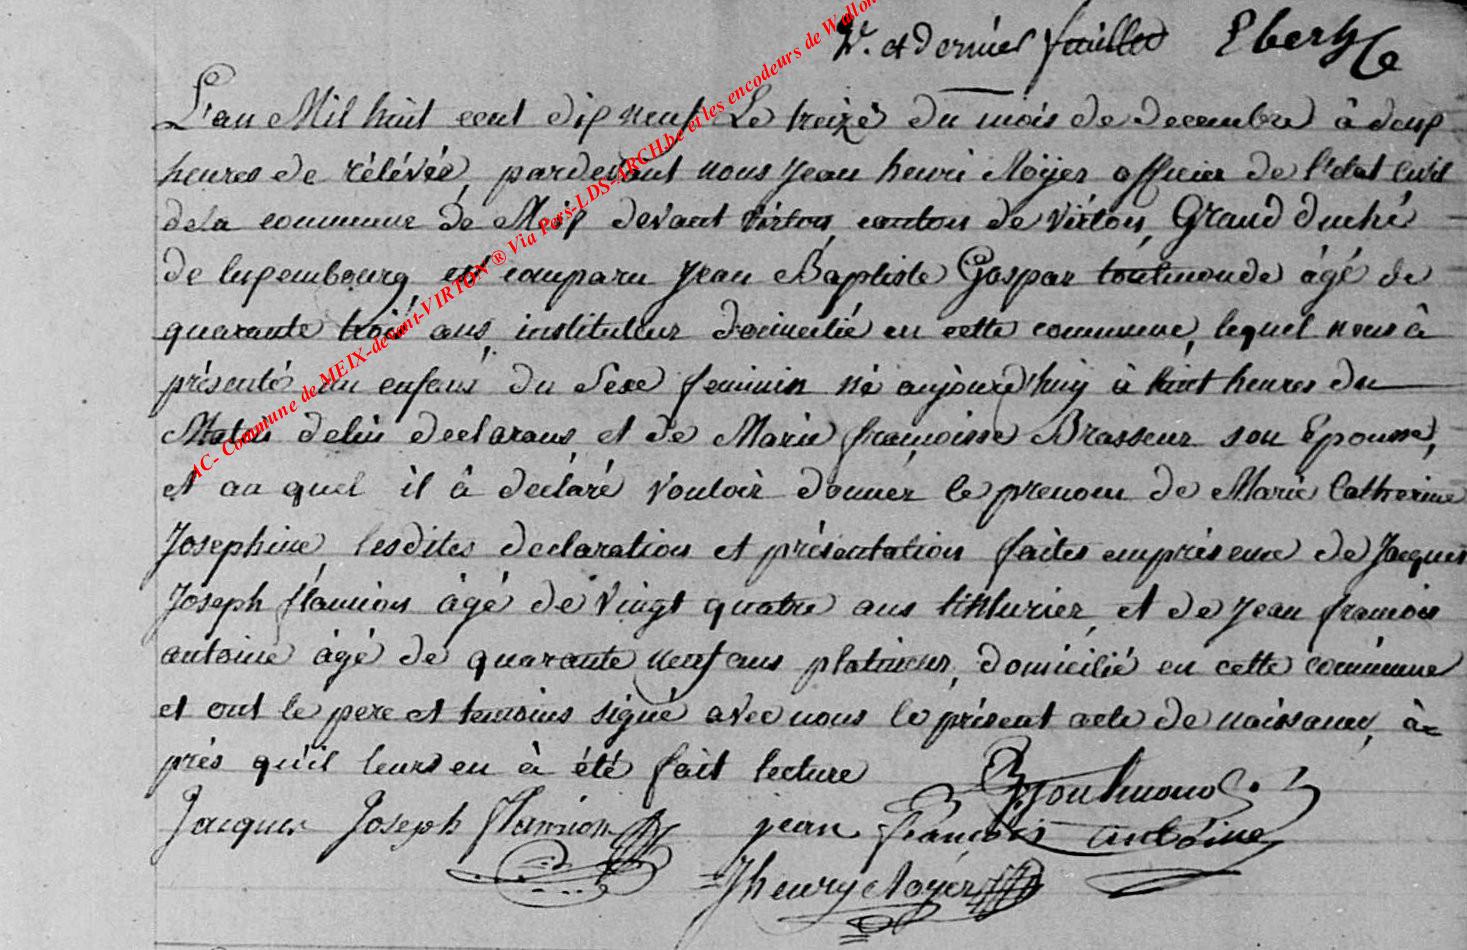 2e. et dernier feuillet Eberhe
AC- Commune de MEIX-devant-VIRTON ® Via Pers-LDS-ARCH.be et les encodeurs de Wallon
L'an Mil huit cent dix neuf Le treize du mois de decembre à deux
heures de rélévée, pardevant nous Jean henri Noÿer officier de l'etat Civil
de la commune de Meix devant virton, canton de virton, Grand duché
de luxembourg est comparu Jean Baptiste Gaspar toutmonde âgé de
quarante trois ans, instituteur domicilié en cette commune, lequel nous à
présenté un enfant du Sexe feminin né aujourd'huy à huit heures du
Matin de lui declarant et de Marie françoisse Brasseur son Epousse,
et au quel il à déclaré vouloir donner le prenom de Marie Catherine
Josephine, lesdites declaration et présentation faites en présence de Jacques
Joseph flamion âgé de vingt quatre ans tinturier, et de Jean francois
antoine âgé de quarante neuf ans platineur, domicilié en cette commune
et ont le pere et temoins signé avec nous le présent acte de naissance, à=
prés qu'il leurs en à été fait lecture
JBG Toutmond
Jacques Joseph flamion jean francois antoine
Jhenry Noÿer